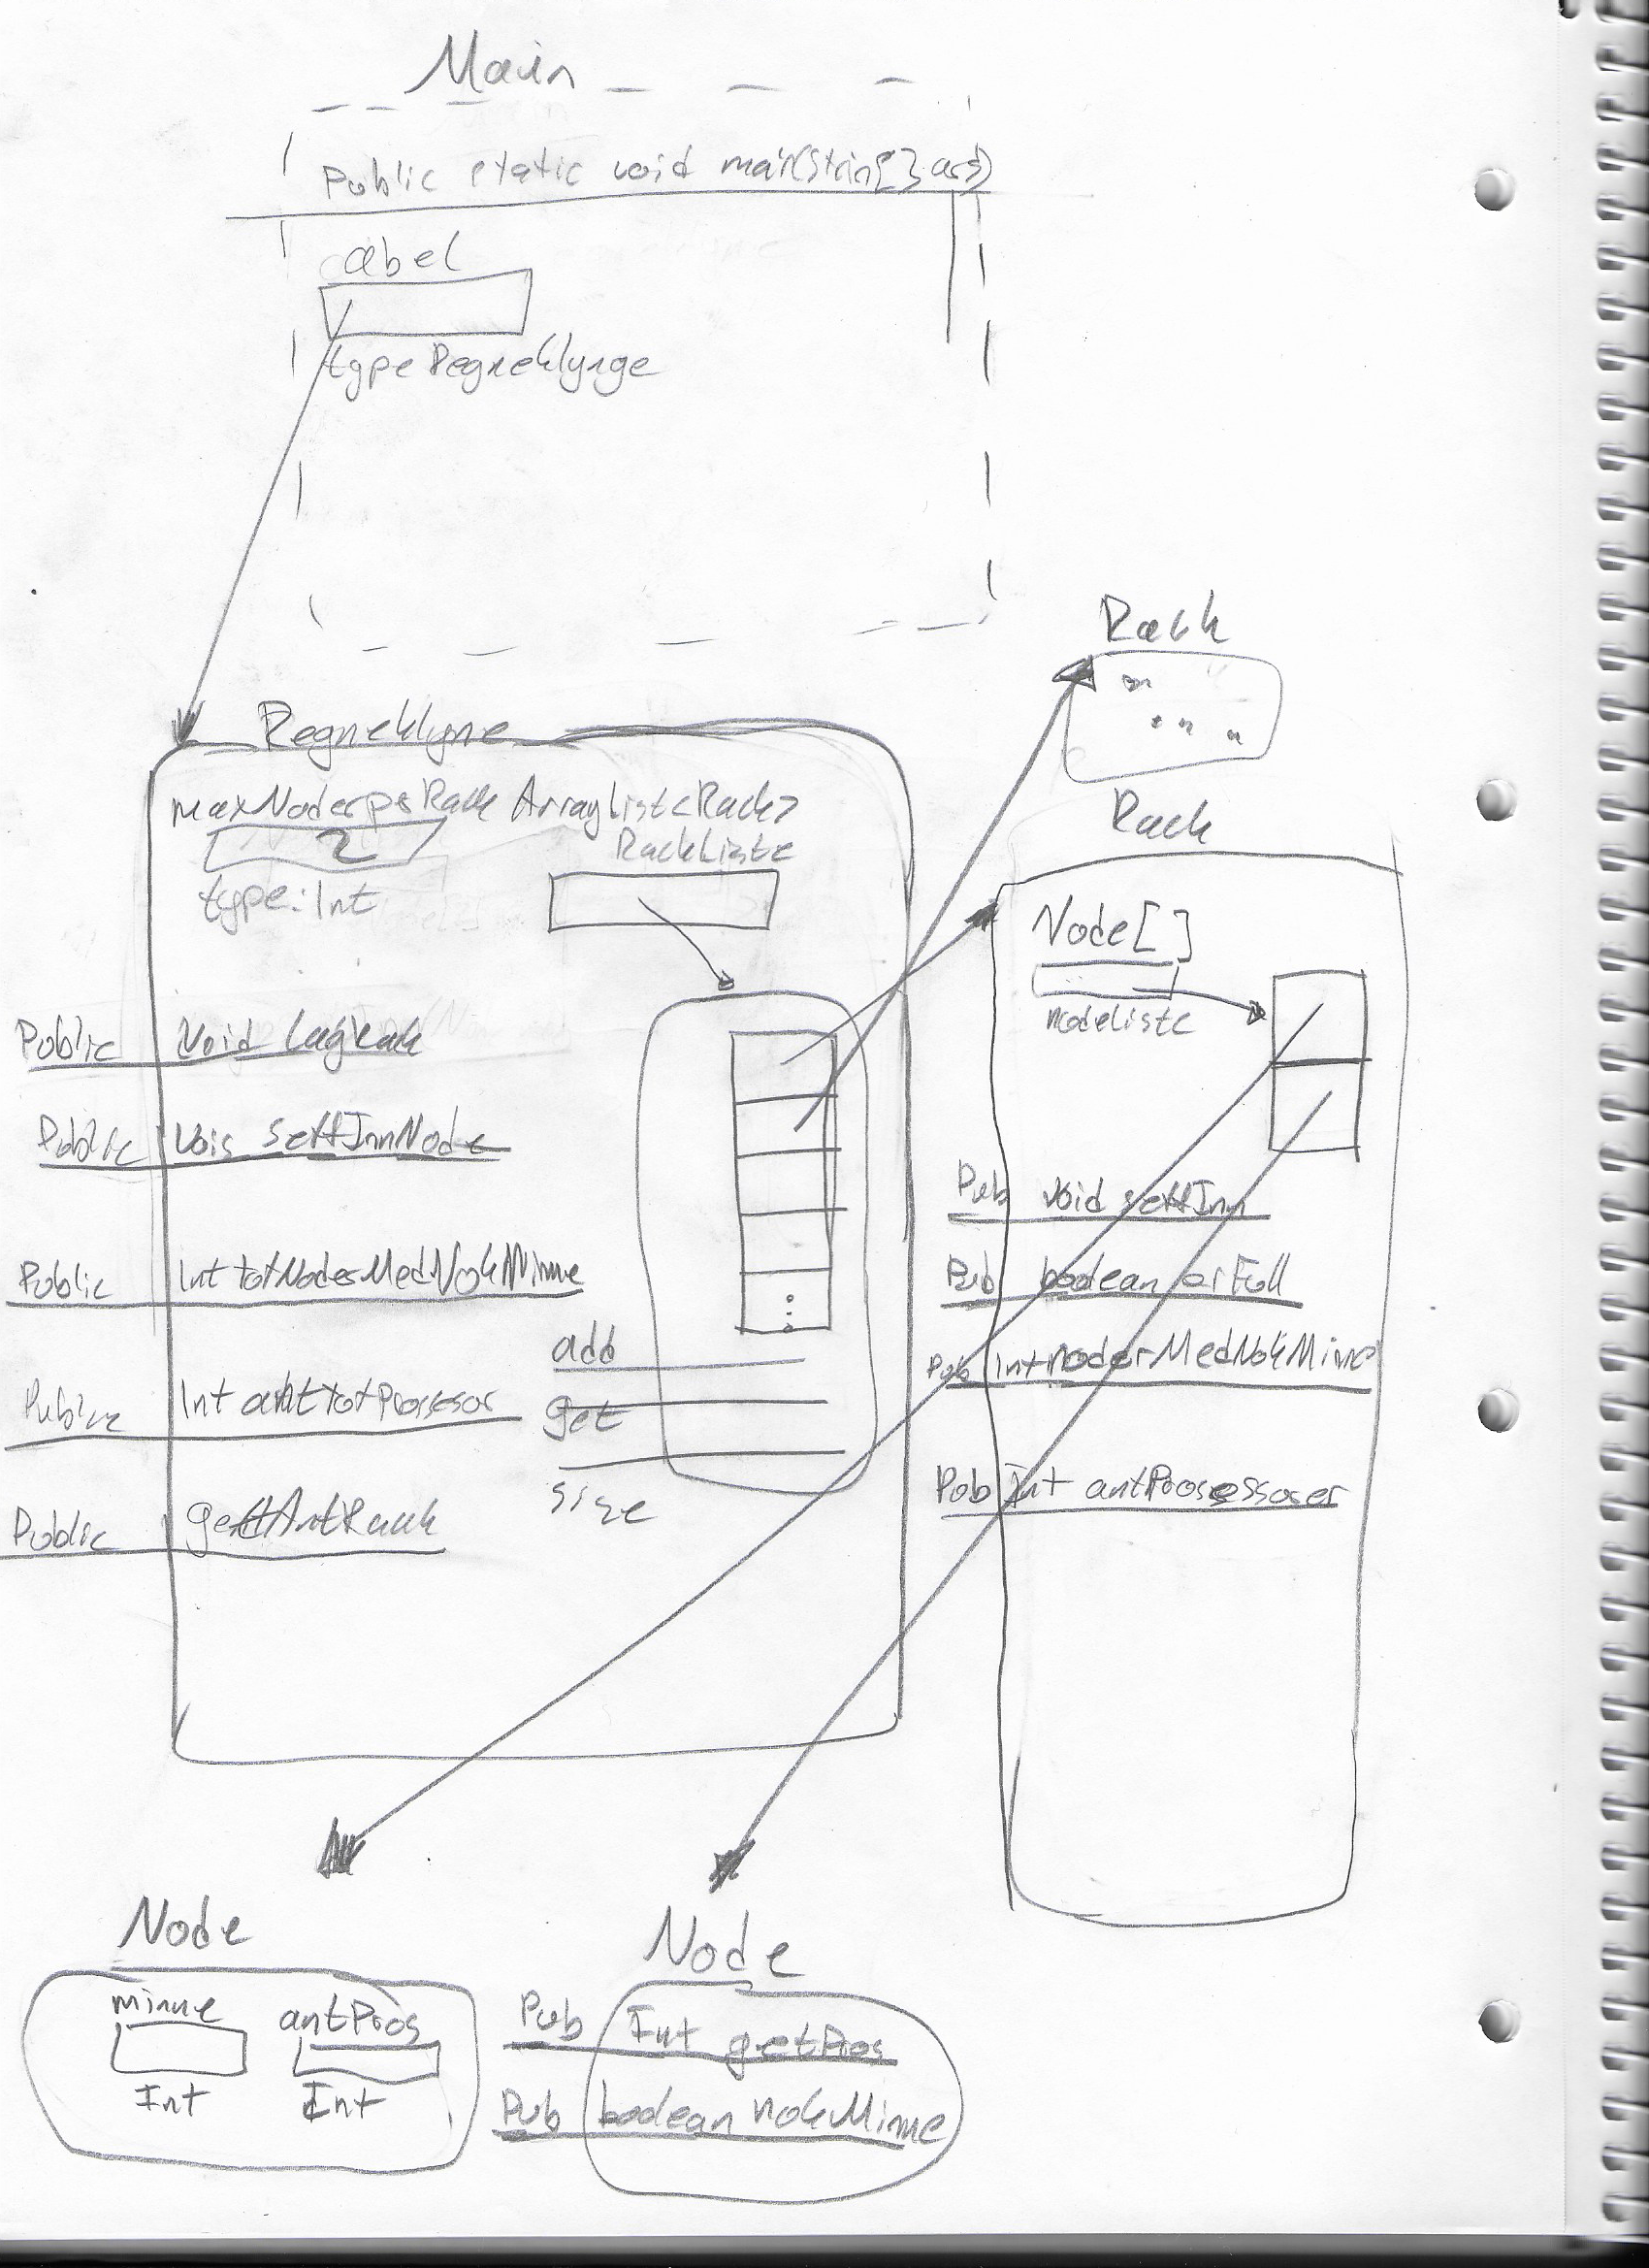 Main
Public static void main(String[] args)
abel
type Regneklynge
Rack
" " "
Regneklyne
maxNoderpeRack ArrayList<Rack>
2
RackListe
type: Int
Rack
Node[]
nodeListe
Public Void lagRack
Public Vois settInnNode
Public Int totNoderMedNokMinne
Public Int antTotProsesor
Public gettAntRack
add
get
size
Pub void settInn
Pub boolean erFull
Pub Int noderMedNokMinne
Pub Int antProsessoser
Node
minne antPros
Int Int
Node
Pub Int getPros
Pub boolean nokMinne